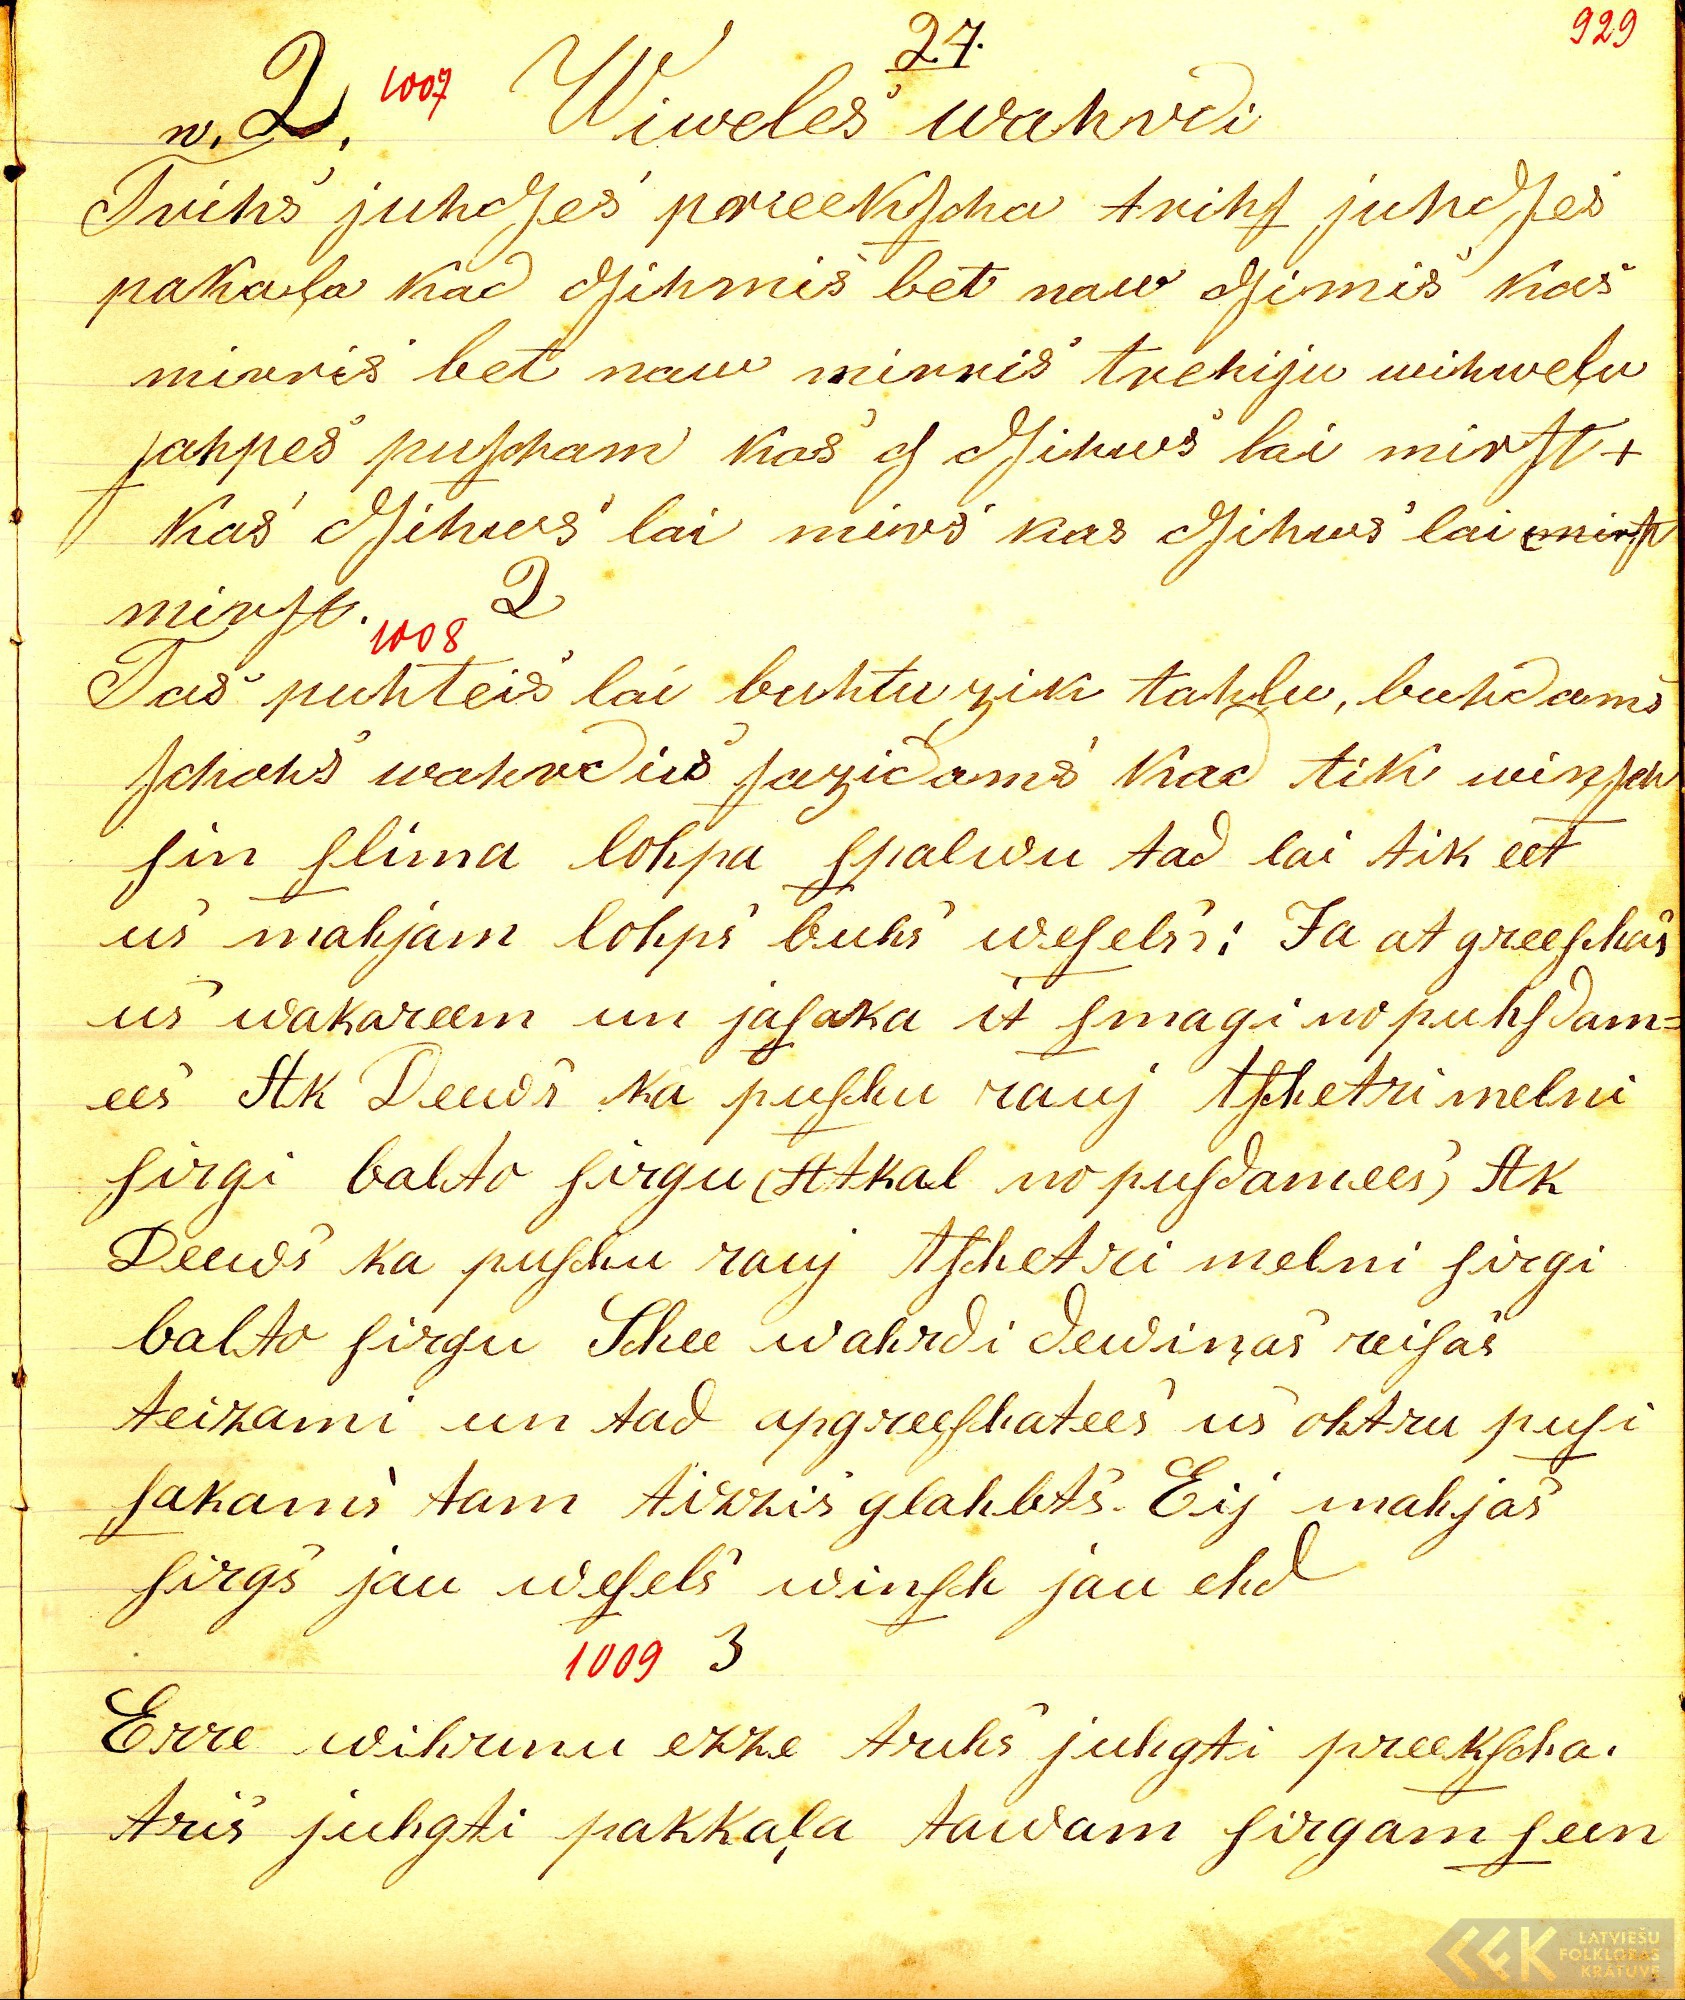 27.
929
w. 2. 1007 Wiweles wahrdi
Trihs juhdſes preekſcha trihſ juhdſes
pakaļa kad dſihmis bet naw dſimis kas
mirris bet naw mirris trehiju wihweļu
ſahpes puſcham kas ſ dſihws lai mirſt +
kas dſihws lai mirs kas dſihws lai mirſt
mirſt. 2
1008
Tas puhteis lai buhtu zik tahlu, buhdams
ſchohs wahrdus ſazidams kad tik winſch
ſin ſlima lohpa ſpalwu tad lai tik eet
us mahjam lohps buhs weſels; Ja at greeſchas
us wakareem un jaſaka it ſmagi no puhſdam=
ees Ak Deews ka puſchu rauj tſchetri melni
ſirgi balto ſirgu (Atkal no puſdamees) Ak
Deews ka puſchu rauj tſchetri melni ſirgi
balto ſirgu Schee wahrdi dewiņas reiſas
teizami un tad apgreeſchatees us ohtru puſi
ſakams tam tizzis glahbts. Eij mahjas
ſirgs jau weſels winſch jau ehd
1009 3
Erre wihrunu ezze truhs juhgti preekſcha.
tris juhgti pakkaļa tawam ſirgam ſeen
LATVIEŠU
FOLKLORAS
KRĀTUVE